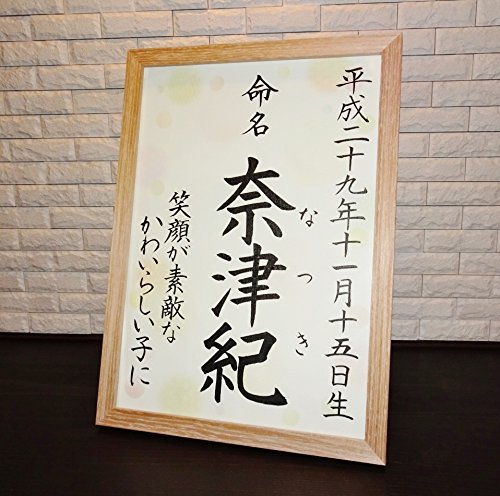 平成二十九年十一月十五日生
命名
奈津紀
なつき
笑顔が素敵な
かわいらしい子に